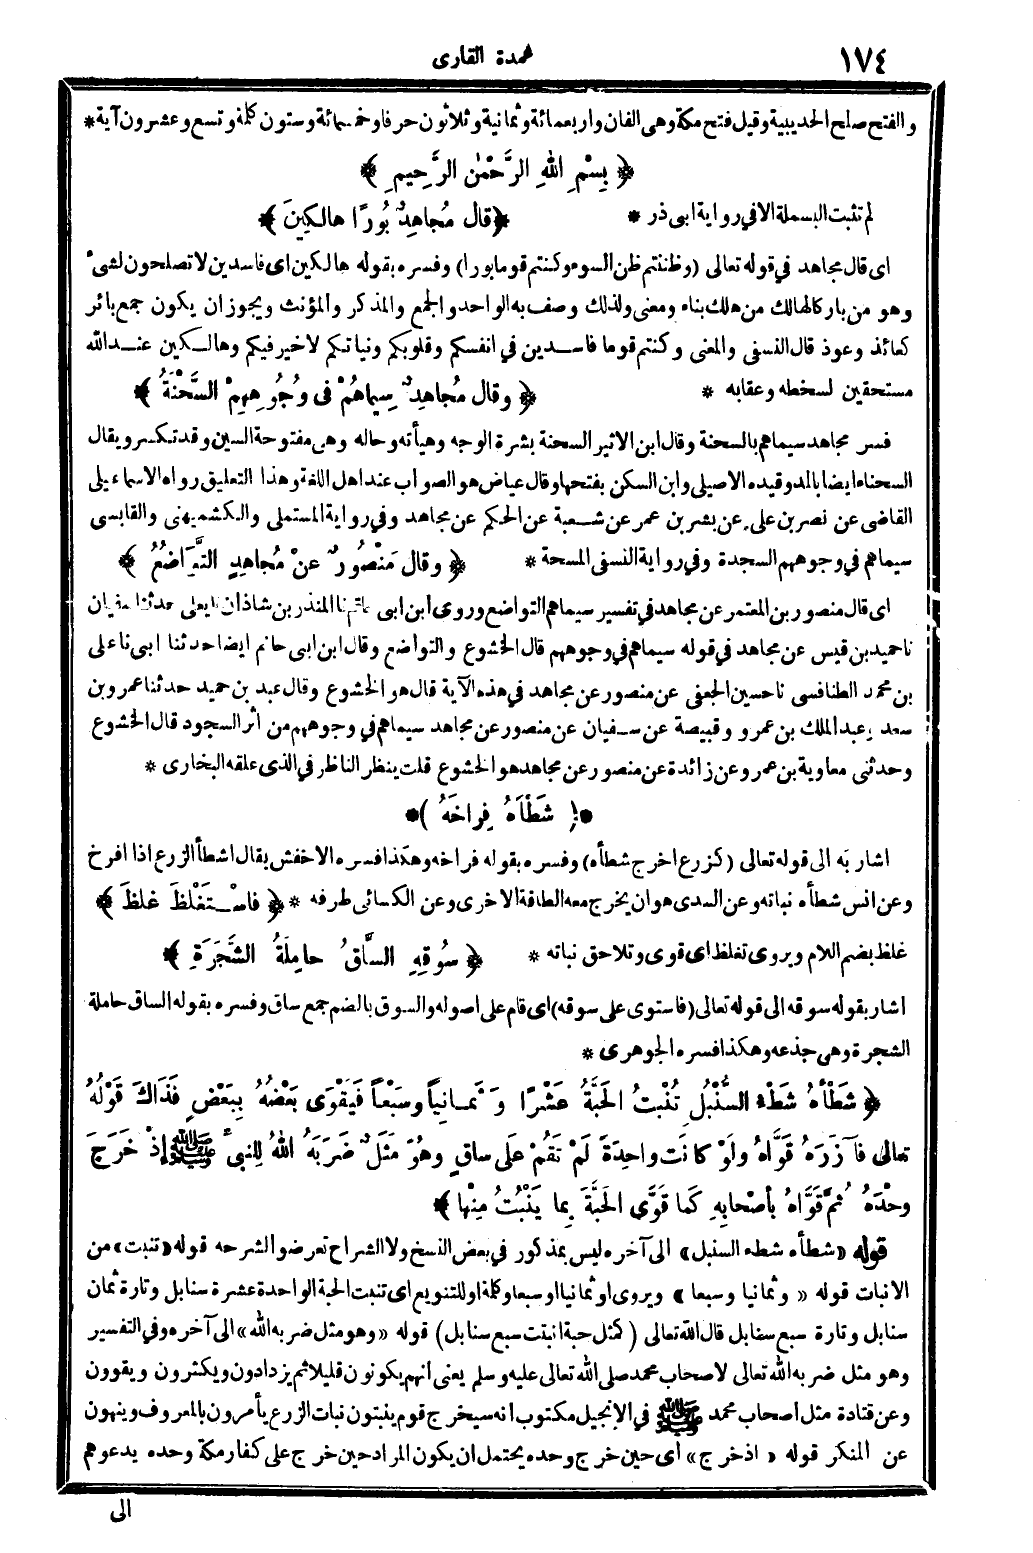 ١٧٤
عمدة القارى
والفتح صلح الحديبية وقيل فتح مكة وهى الفان واربعمائة وثمانية وثلاثون حرفا وخمسمائة وستون كلمة وتسع وعشرون آية *
﴿ بِسْمِ اللهِ الرَّحْمٰنِ الرَّحِيمِ ﴾
لم تثبت البسملة الا فى رواية ابى ذر * ﴿ قال مُجاهِدٌ بُورًا هالِكِينَ ﴾
اى قال مجاهد في قوله تعالى (وظننتم ظن السوء وكنتم قوما بورا) وفسره بقوله هالكين اى فاسدين لا تصلحون لشىء
وهو من بار كالهالك من هلك بناء ومعنى ولذلك وصف به الواحد والجمع والمذكر والمؤنث ويجوز ان يكون جمع بائر
كعائذ وعوذ قال النسفى والمعنى وكنتم قوما فاسدين في انفسكم وقلوبكم ونياتكم لا خير فيكم وهالكين عند الله
مستحقين لسخطه وعقابه * ﴿ وقال مُجاهِدٌ سِيماهُمْ فى وُجُوهِهِمْ السَّحْنَةُ ﴾
فسر مجاهد سيماهم بالسحنة وقال ابن الاثير السحنة بشرة الوجه وهيأته وحاله وهى مفتوحة السين وقد تكسر ويقال
السحناء ايضا بالمد وقيده الاصيلى وابن السكن بفتحها وقال عياض هو الصواب عند اهل اللغة وهذا التعليق رواه الاسماعيلى
القاضى عن نصر بن على عن بشر بن عمر عن شعبة عن الحكم عن مجاهد وفي رواية المستملى والكشميهنى والقابسى
سيماهم في وجوههم السجدة وفي رواية النسفى المسحة * ﴿ وقال مَنْصُورٌ عنْ مُجاهِدٍ التَّوَاضُعُ ﴾
اى قال منصور بن المعتمر عن مجاهد في تفسير سيماهم التواضع وروى ابن ابى حاتم نا المنذر بن شاذان نا يعلى حدثنا سفيان
نا حميد بن قيس عن مجاهد في قوله سيماهم في وجوههم قال الخشوع والتواضع وقال ابن ابى حاتم ايضا حدثنا ابى نا على
بن محمد الطنافسى نا حسين الجعفى عن منصور عن مجاهد في هذه الآية قال هو الخشوع وقال عبد بن حميد حدثنا عمرو بن
سعد وعبد الملك بن عمرو وقبيصة عن سفيان عن منصور عن مجاهد سيماهم في وجوههم من أثر السجود قال الخشوع
وحدثنى معاوية بن عمرو عن زائدة عن منصور عن مجاهد هو الخشوع قلت ينظر الناظر في الذى علقه البخارى *
﴿ شَطْأَهُ فِراخَهُ ﴾
اشار به الى قوله تعالى (كزرع اخرج شطأه) وفسره بقوله فراخه وهكذا فسره الاخفش يقال اشطأ الزرع اذا افرخ
وعن انس شطأه نباته وعن السدى هو ان يخرج معه الطاقة الاخرى وعن الكسائى طرفه * ﴿ فاسْتَغْلَظَ غلظَ ﴾
غلظ بضم اللام ويروى تغلظ اى قوى وتلاحق نباته * ﴿ سُوقِهِ السَّاقُ حامِلَةُ الشَّجَرَةِ ﴾
اشار بقوله سوقه الى قوله تعالى (فاستوى على سوقه) اى قام على اصوله والسوق بالضم جمع ساق وفسره بقوله الساق حاملة
الشجرة وهى جذعه وهكذا فسره الجوهرى *
﴿ شَطْأهُ شَطْءُ السُّنْبُلِ تُنْبتُ الحَبَّةُ عَشْرًا وَثمانِياً وسَبْعاً فَيَقْوَى بَعْضُهُ بِبَعْضٍ فَذَاكَ قَوْلُهُ
تعالى فآزَرَهُ قَوَّاهُ ولَوْ كانَت واحِدَةً لَمْ تَقُمْ عَلَى ساقٍ وهُوَ مَثَلٌ ضَرَبَهُ اللهُ لِلنبىِّ ﷺ إذْ خَرَجَ
وحْدَهُ ثُمَّ قَوَّاهُ بأصْحابِهِ كَما قَوَّى الحَبَّةَ بِما يَنْبُتُ مِنْها ﴾
قوله «شطأه شطء السنبل» الى آخره ليس بمذكور في بعض النسخ ولا الشراح تعرضوا لشرحه قوله «تنبت» من
الانبات قوله « وثمانيا وسبعا » ويروى او ثمانيا او سبعا وكلمة او للتنويع اى تنبت الحبة الواحدة عشرة سنابل وتارة ثمان
سنابل وتارة سبع سنابل قال الله تعالى (كمثل حبة انبتت سبع سنابل) قوله «وهو مثل ضربه الله» الى آخره وفي التفسير
وهو مثل ضربه الله تعالى لاصحاب محمد صلى الله تعالى عليه وسلم يعنى أنهم يكونون قليلا ثم يزدادون ويكثرون ويقوون
وعن قتادة مثل اصحاب محمد ﷺ في الإنجيل مكتوب انه سيخرج قوم ينبتون نبات الزرع يأمرون بالمعروف وينهون
عن المنكر قوله « اذ خرج» أى حين خرج وحده يحتمل ان يكون المراد حين خرج على كفار مكة وحده يدعوهم
الى